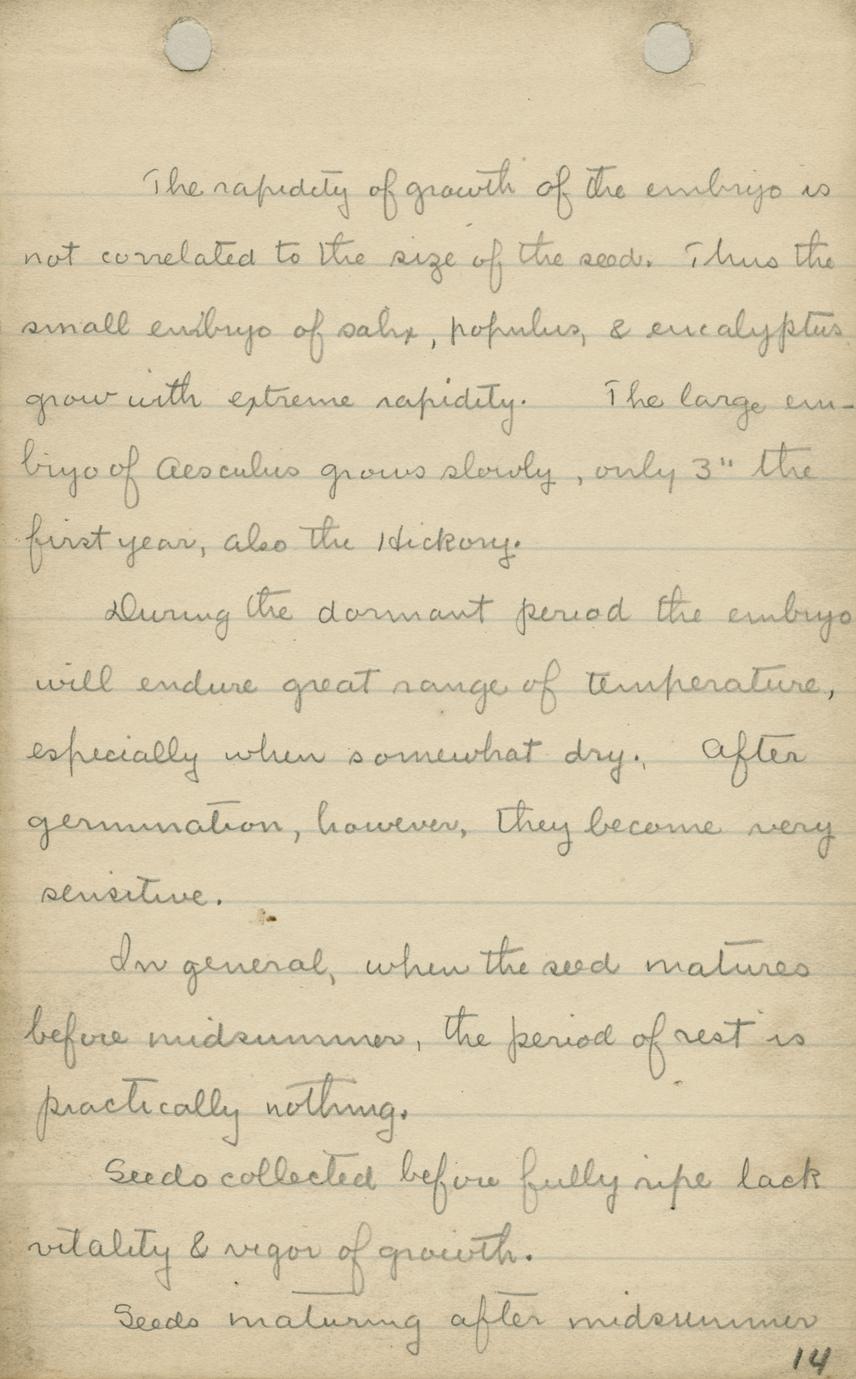 The rapidity of growth of the embryo is
not correlated to the size of the seed. Thus the
small embryo of salix, populus, & eucalyptus
grow with extreme rapidity. The large em-
bryo of Aesculus grows slowly, only 3" the
first year, also the Hickory.
During the dormant period the embryo
will endure great range of temperature,
especially when somewhat dry. After
germination, however, they become very
sensitive.
In general, when the seed matures
before midsummer, the period of rest is
practically nothing.
Seeds collected before fully ripe lack
vitality & vigor of growth.
Seeds maturing after midsummer
14